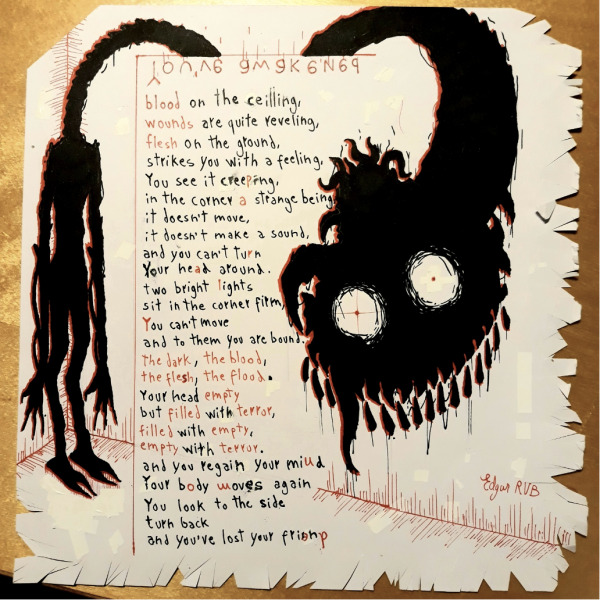 blood on the ceilling,
wounds are quite reveling,
flesh on the ground,
strikes you with a feeling,
You see it creeping,
in the corner a strange being
it doesn't move,
it doesn't make a sound,
and you can't turn
Your head around.
two bright lights
sit in the corner firm,
You can't move
and to them you are bound.
The dark, the blood,
the flesh, the flood.
Your head empty
but filled with terror,
filled with empty,
empty with terror.
and you regain your miud
Your body moves again
You look to the side
turn back
and you've lost your frienp
Edgar RVB